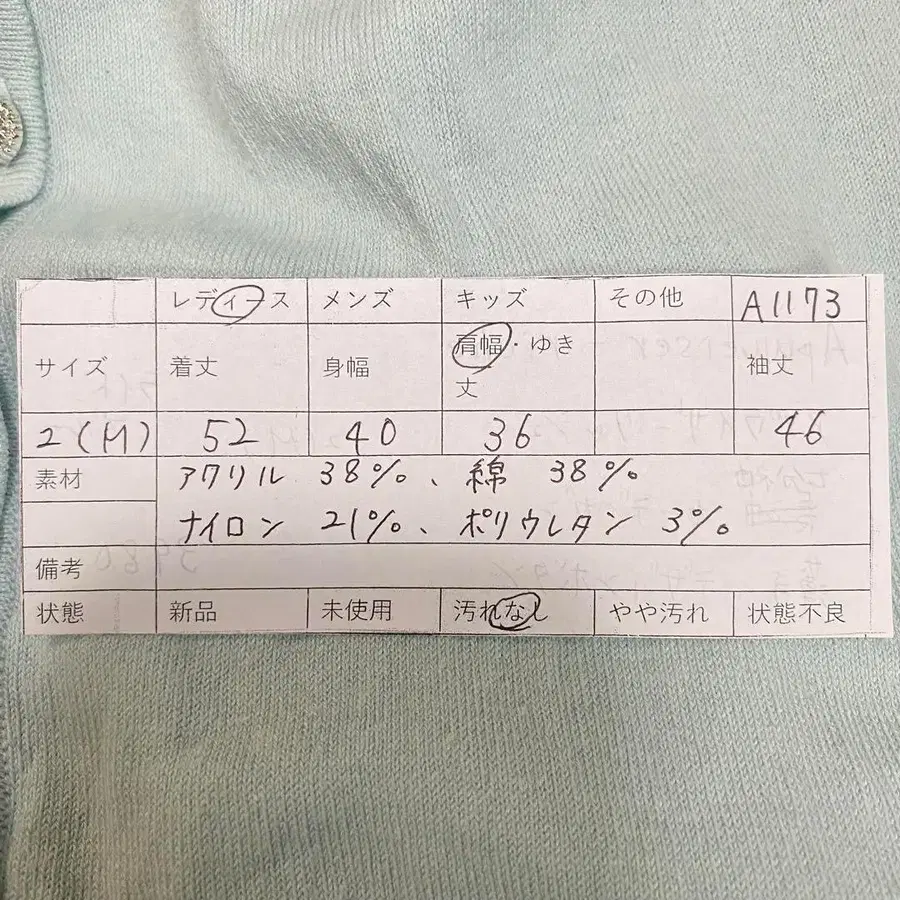 レディース メンズ キッズ その他 A1173
サイズ 着丈 身幅 肩幅・ゆき丈 袖丈
2(M) 52 40 36 46
素材 アクリル 38%、綿 38%
ナイロン 21%、ポリウレタン 3%
備考
状態 新品 未使用 汚れなし やや汚れ 状態不良